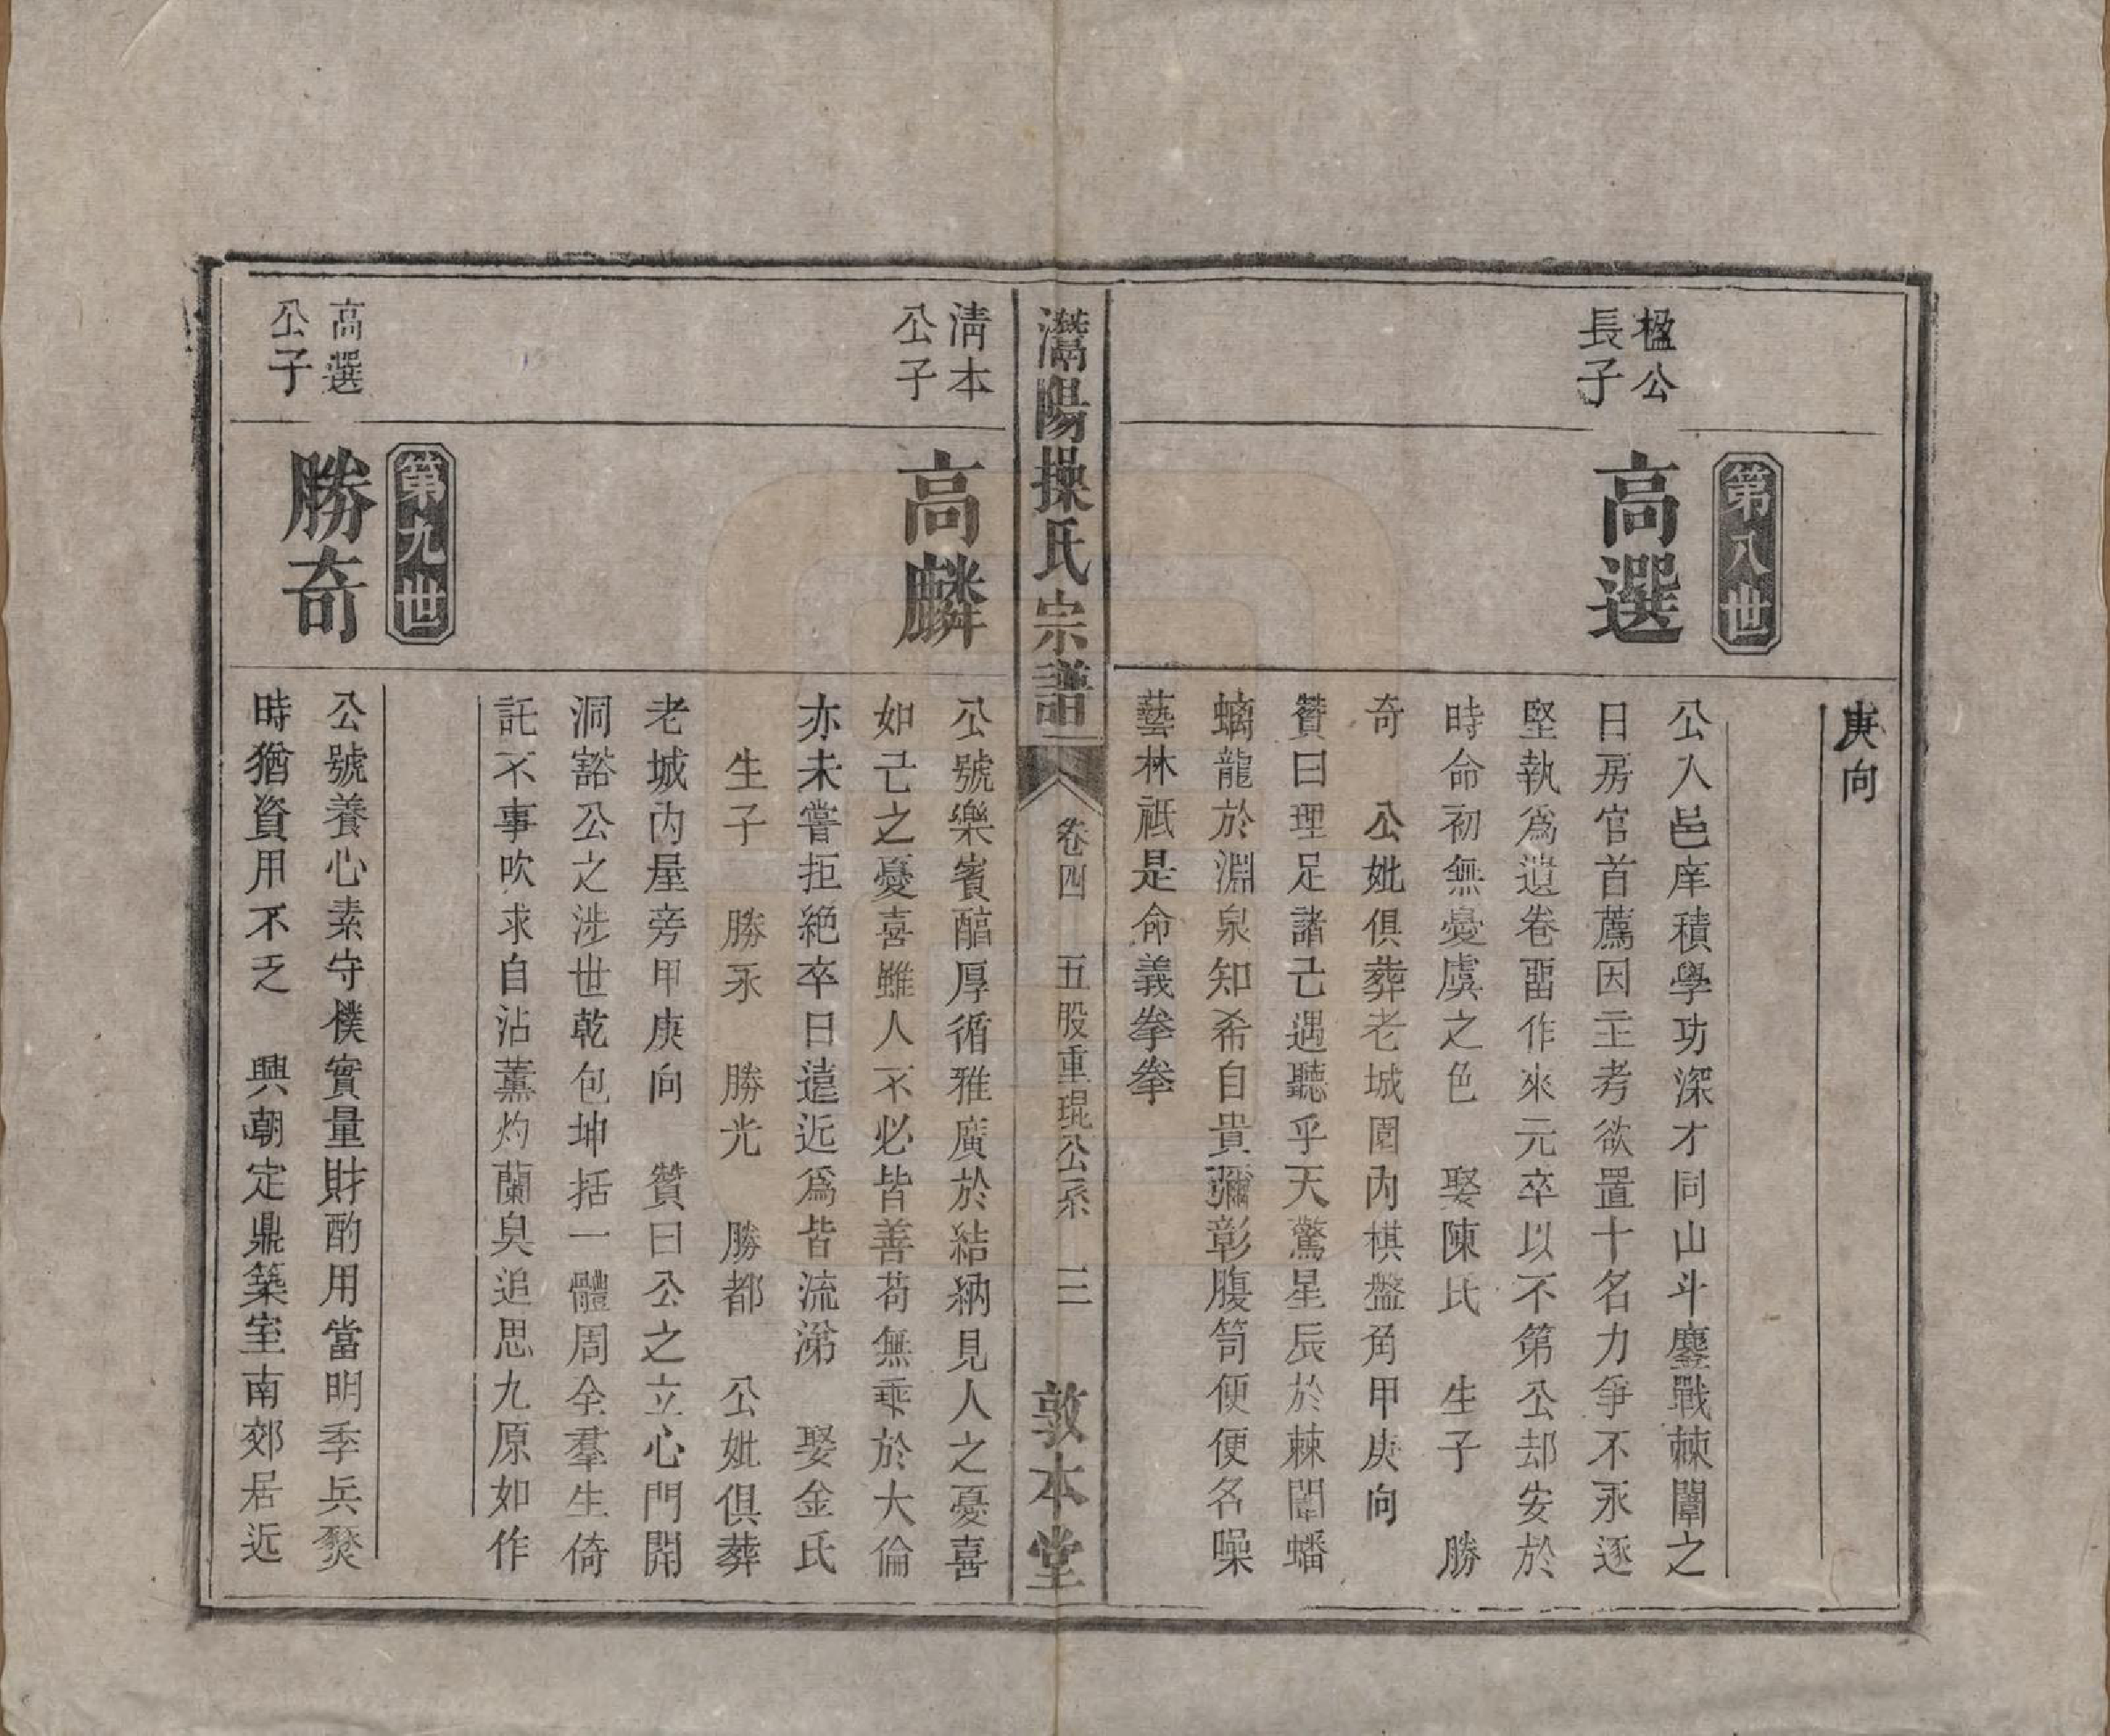 庚向
第八世
楹公
長子
高選
公入邑庠積學功深才同山斗鏖戰棘闈之
日房官首薦因主考欲置十名力爭不永逐
堅執爲遺卷畱作來元卒以不第公却安於
時命初無憂虞之色　娶陳氏　生子　勝
奇　公妣俱葬老城園內棋盤角甲庚向
贊曰理足諸己遇聽乎天驚星辰於棘闈蟠
螭龍於淵泉知希自貴彌彰腹笥便便名噪
藝林祇是命義拳拳
灊陽操氏宗譜
卷四　五股重琨公系　三
敦本堂
清本
公子
高麟
公號樂賓醕厚循雅廣於結納見人之憂喜
如己之憂喜雖人不必皆善苟無乖於大倫
亦未嘗拒絕卒日遠近爲皆流涕　娶金氏
生子　勝永　勝光　勝都　公妣俱葬
老城內屋旁甲庚向　贊曰公之立心門開
洞豁公之涉世乾包坤括一體周全羣生倚
託不事吹求自沾薰灼蘭臭追思九原如作
第九世
高選
公子
勝奇
公號養心素守樸實量財酌用當明季兵燹
時猶資用不乏　興朝定鼎築室南郊居近